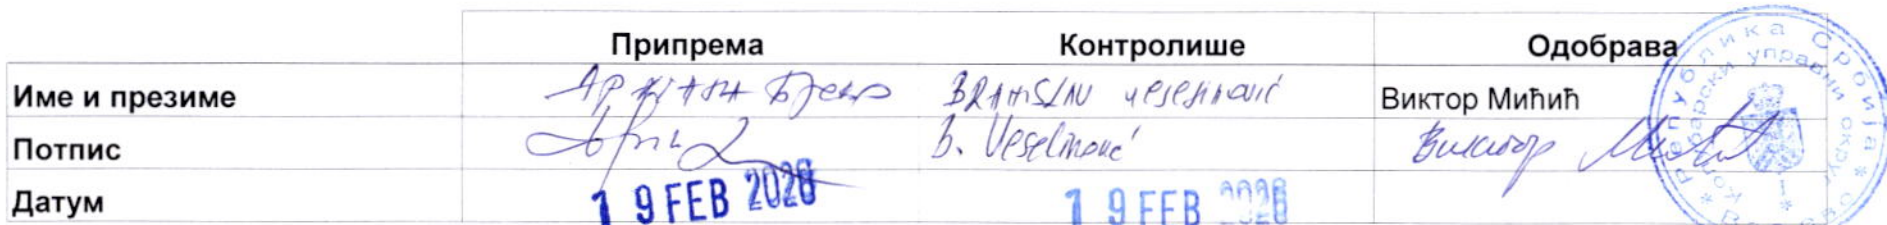 Припрема Контролише Одобрава
Име и презиме BRANISLAV Veselinović Виктор Мићић
Потпис B. Veselinović Виктор Мићић
Датум 19 FEB 2026 19 FEB 2026
Република Србија
Колубарски управни округ